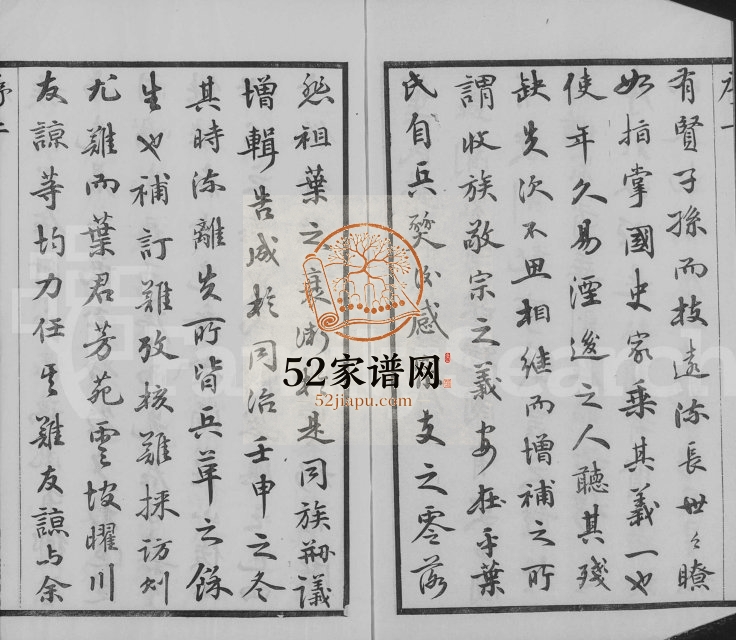 序一
有賢子孫而枝遠流長世々瞭
如指掌國史家乘其義一也
使年久易湮後之人聽其殘
缺失次不思相継而增補之所
謂收族敬宗之義安在乎葉
氏自兵燹後感 支之零落
怒祖葉之衰 是同族册議
增輯告成於同治壬申之冬
其時流離失所皆兵革之餘
生也補訂難攷核難採訪刻
尤難而葉君芳苑雲坡曜川
友諒等均力任其難友諒与余
序二
52家谱网
52jiapu.com
FamilySearch